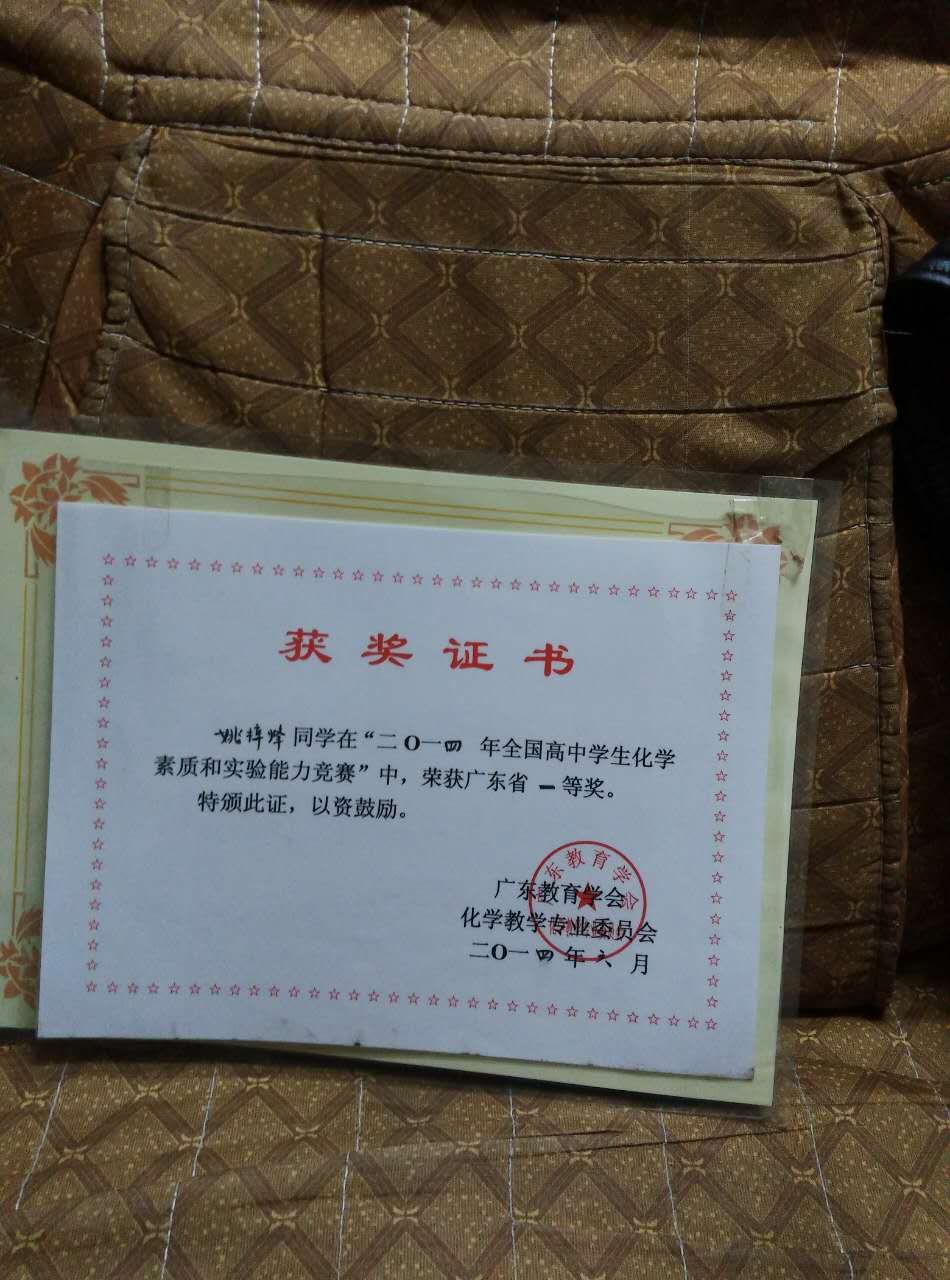 获奖证书
姚梓烽同学在“二〇一四 年全国高中学生化学
素质和实验能力竞赛”中，荣获广东省 一等奖。
特颁此证，以资鼓励。
广东教育学会
化学教学专业委员会
二〇一四年六月
东教育学会